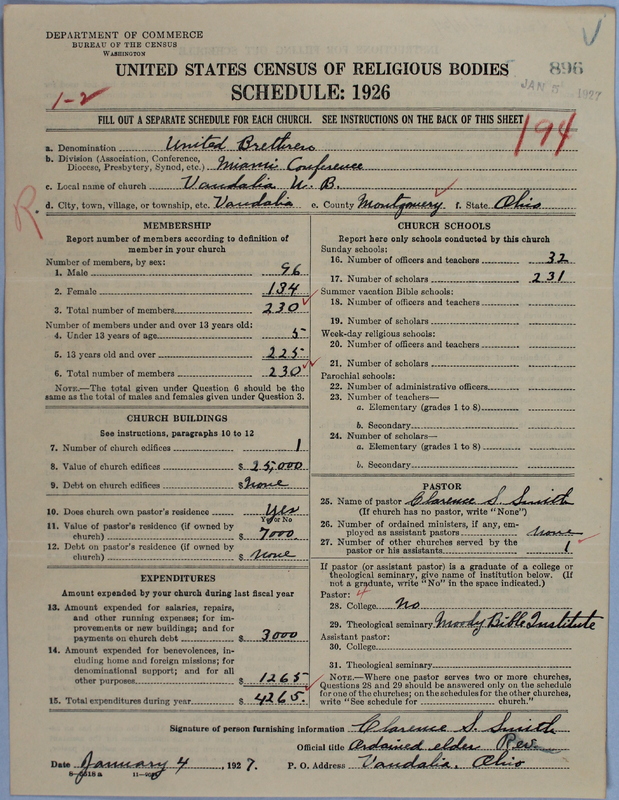 DEPARTMENT OF COMMERCE
BUREAU OF THE CENSUS
WASHINGTON
UNITED STATES CENSUS OF RELIGIOUS BODIES
896
SCHEDULE: 1926
JAN 5 1927
1-2
FILL OUT A SEPARATE SCHEDULE FOR EACH CHURCH. SEE INSTRUCTIONS ON THE BACK OF THIS SHEET
194
a. Denomination United Brethren
b. Division (Association, Conference, Diocese, Presbytery, Synod, etc.) Miami Conference
c. Local name of church Vandalia U. B.
d. City, town, village, or township, etc. Vandalia e. County Montgomery f. State Ohio
R.
MEMBERSHIP
Report number of members according to definition of
member in your church
Number of members, by sex:
1. Male 96
2. Female 134
3. Total number of members 230
Number of members under and over 13 years old:
4. Under 13 years of age 5
5. 13 years old and over 225
6. Total number of members 230
NOTE.—The total given under Question 6 should be the
same as the total of males and females given under Question 3.
CHURCH BUILDINGS
See instructions, paragraphs 10 to 12
7. Number of church edifices 1
8. Value of church edifices $ 25,000
9. Debt on church edifices $ none
10. Does church own pastor's residence Yes
Yes or No
11. Value of pastor's residence (if owned by
church) $ 7000.
12. Debt on pastor's residence (if owned by
church) $ none
EXPENDITURES
Amount expended by your church during last fiscal year
13. Amount expended for salaries, repairs,
and other running expenses; for im-
provements or new buildings; and for
payments on church debt $ 3000
14. Amount expended for benevolences, in-
cluding home and foreign missions; for
denominational support; and for all
other purposes $ 1265
15. Total expenditures during year $ 4265.
CHURCH SCHOOLS
Report here only schools conducted by this church
Sunday schools:
16. Number of officers and teachers 32
17. Number of scholars 231
Summer vacation Bible schools:
18. Number of officers and teachers
19. Number of scholars
Week-day religious schools:
20. Number of officers and teachers
21. Number of scholars
Parochial schools:
22. Number of administrative officers
23. Number of teachers—
a. Elementary (grades 1 to 8)
b. Secondary
24. Number of scholars—
a. Elementary (grades 1 to 8)
b. Secondary
PASTOR
25. Name of pastor Clarence S. Smith
(If church has no pastor, write "None")
26. Number of ordained ministers, if any, em-
ployed as assistant pastors none
27. Number of other churches served by the
pastor or his assistants 1
If pastor (or assistant pastor) is a graduate of a college or
theological seminary, give name of institution below. (If
not a graduate, write "No" in the space indicated.)
Pastor: 4
28. College No
29. Theological seminary Moody Bible Institute
Assistant pastor:
30. College
31. Theological seminary
NOTE.—Where one pastor serves two or more churches,
Questions 28 and 29 should be answered only on the schedule
for one of the churches; on the schedules for the other churches,
write "See schedule for church."
Signature of person furnishing information Clarence S. Smith
Official title Ordained elder Rev.
Date January 4, 1927. P. O. Address Vandalia, Ohio